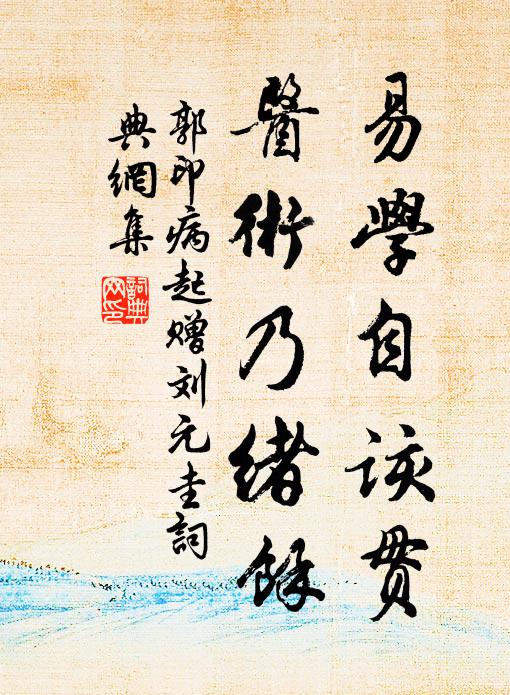 易學自該貫
醫術乃緒餘
郭印病起贈刘元圭詞
典網集
詞典
网印